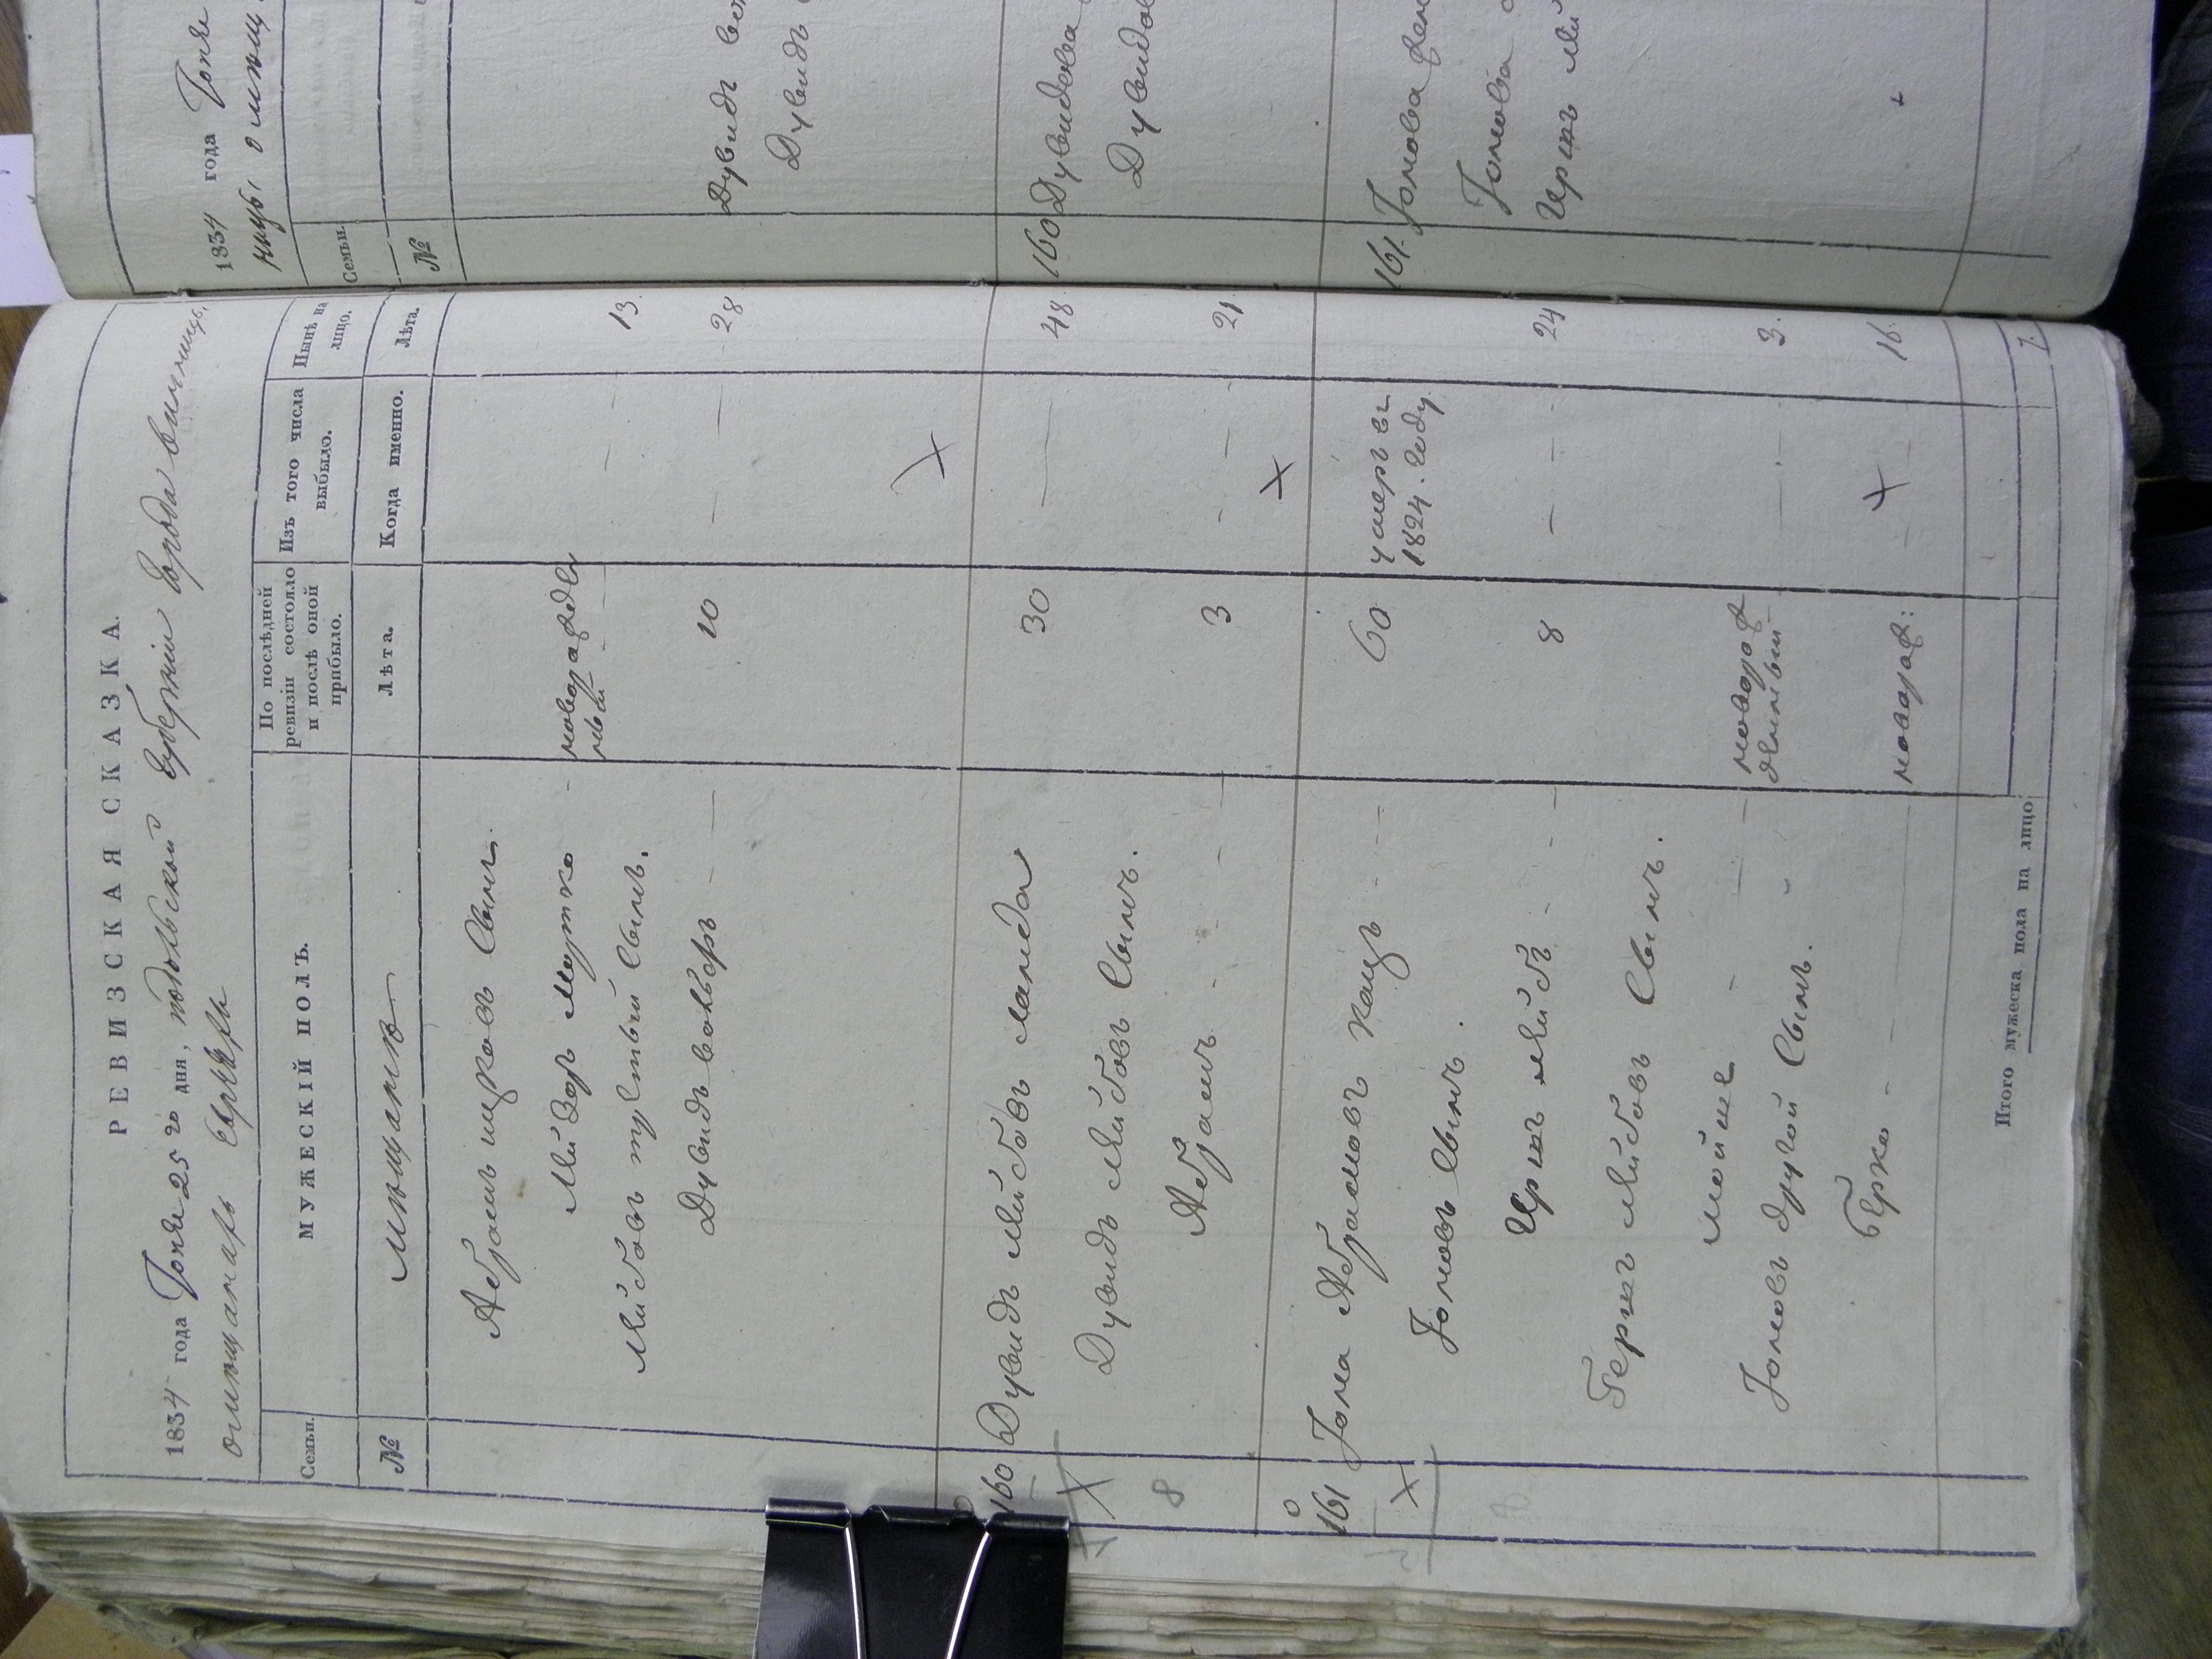 РЕВИЗСКАЯ СКАЗКА.
1834 года Іюня 25 го дня, подольской губерніи города винницы,
о мѣщанахъ евреяхъ
Семьи. МУЖЕСКІЙ ПОЛЪ. По послѣдней ревизіи состояло и послѣ оной прибыло. Изъ того числа выбыло. Нынѣ на лицо.
№ мѣщанѣ Лѣта. Когда именно. Лѣта.
Абрамъ ицковъ Сынъ.
Лейзоръ мотко - новорожден ный - 13.
Лейбовъ третьій Сынъ.
Дувидъ волько — 10 — 28
160 Дувидъ Лейбовъ 30 — 48
Дувидъ Лейбовъ Сынъ.
Абрамъ - 3 — 21.
161 Іома Абрамовъ кацъ 60 умеръ въ 1824. году.
Іомовъ Сынъ.
Гершъ лейбъ - 8 — 24
Гершъ лейбовъ Сынъ.
мойше — новорож денный — 3.
Іомовъ другой Сынъ.
Берко - новорож: — 16.
Итого мужеска пола на лицо 7.
1834 года Іюня
ницы о мѣщ
Семьи.
№
Дувидъ
Дувидъ
160 Дувидова
Дувидов
161. Іомова
Іомова
Гершъ лей
8